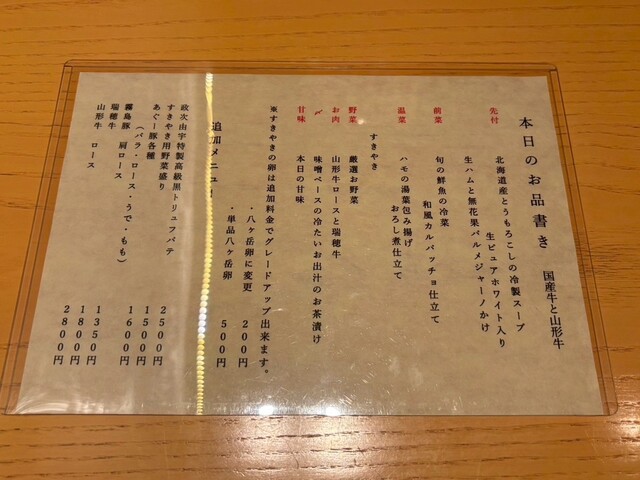 本日のお品書き
国産牛と山形牛
先付
北海道産とうもろこしの冷製スープ
生ピュアホワイト入り
生ハムと無花果パルメジャーノかけ
前菜
旬の鮮魚の冷菜
和風カルパッチョ仕立て
温菜
ハモの湯葉包み揚げ
おろし煮仕立て
すきやき
野菜 厳選お野菜
お肉 山形牛ロースと瑞穂牛
〆 味噌ベースの冷たいお出汁のお茶漬け
甘味 本日の甘味
※すきやきの卵は追加料金でグレードアップ出来ます。
・八ヶ岳卵に変更 200円
・単品八ヶ岳卵 500円
追加メニュー
政次由宇特製高級黒トリュフパテ 2500円
すきやき用野菜盛り 1500円
あぐー豚各種 1600円
(バラ・ロース・うで・もも)
霧島豚 肩ロース 1350円
瑞穂牛 1800円
山形牛 ロース 2800円